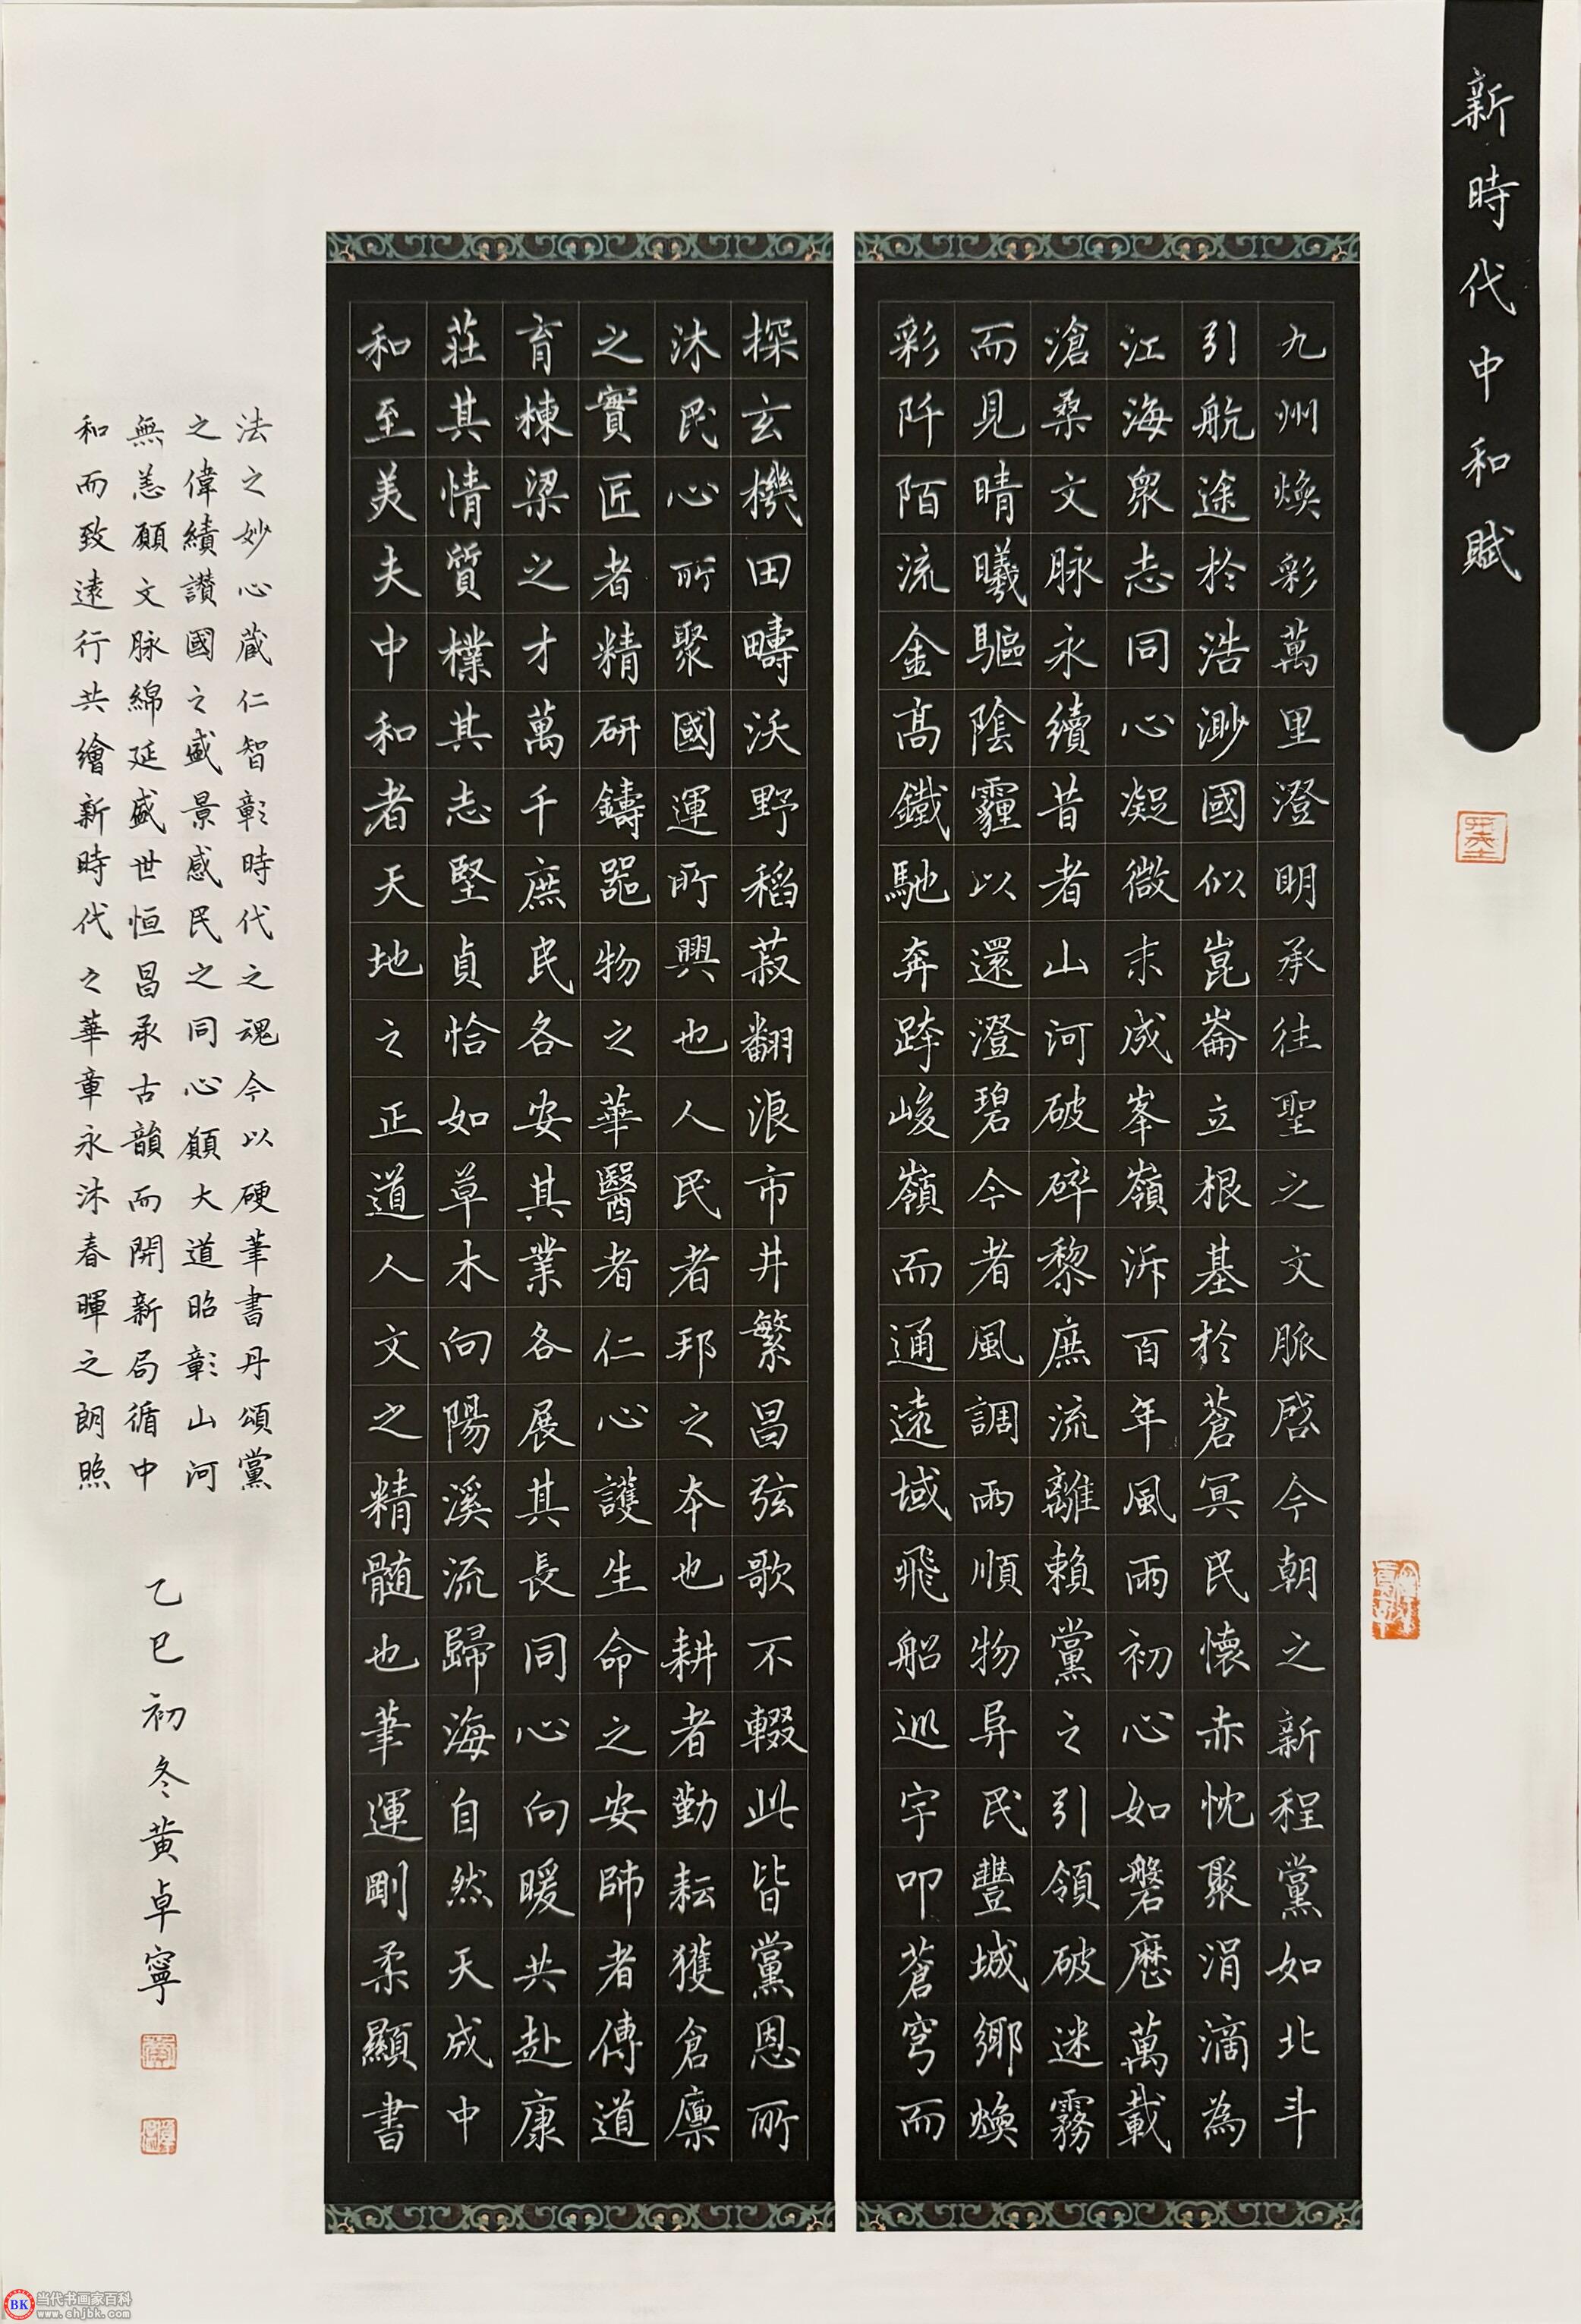 新時代中和賦
九州煥彩萬里澄明承往聖之文脈啓今朝之新程黨如北斗
引航途於浩渺國似崑崙立根基於蒼冥民懷赤忱聚涓滴為
江海眾志同心凝微末成峯嶺泝百年風雨初心如磐歷萬載
滄桑文脉永續昔者山河破碎黎庶流離賴黨之引領破迷霧
而見晴曦驅陰霾以還澄碧今者風調雨順物阜民豐城鄉煥
彩阡陌流金高鐵馳奔跨峻嶺而通遠域飛船巡宇叩蒼穹而
探玄機田疇沃野稻菽翻浪市井繁昌弦歌不輟此皆黨恩所
沐民心所聚國運所興也人民者邦之本也耕者勤耘獲倉廩
之實匠者精研鑄器物之華醫者仁心護生命之安師者傳道
育棟梁之才萬千庶民各安其業各展其長同心向暖共赴康
莊其情質樸其志堅貞恰如草木向陽溪流歸海自然天成中
和至美夫中和者天地之正道人文之精髓也筆運剛柔顯書
法之妙心蔵仁智彰時代之魂今以硬筆書丹頌黨
之偉績讚國之盛景感民之同心願大道昭彰山河
無恙願文脉綿延盛世恒昌承古韻而開新局循中
和而致遠行共繪新時代之華章永沐春暉之朗照
乙巳初冬黃卓寧
BK 当代书画家百科
www.shjbk.com